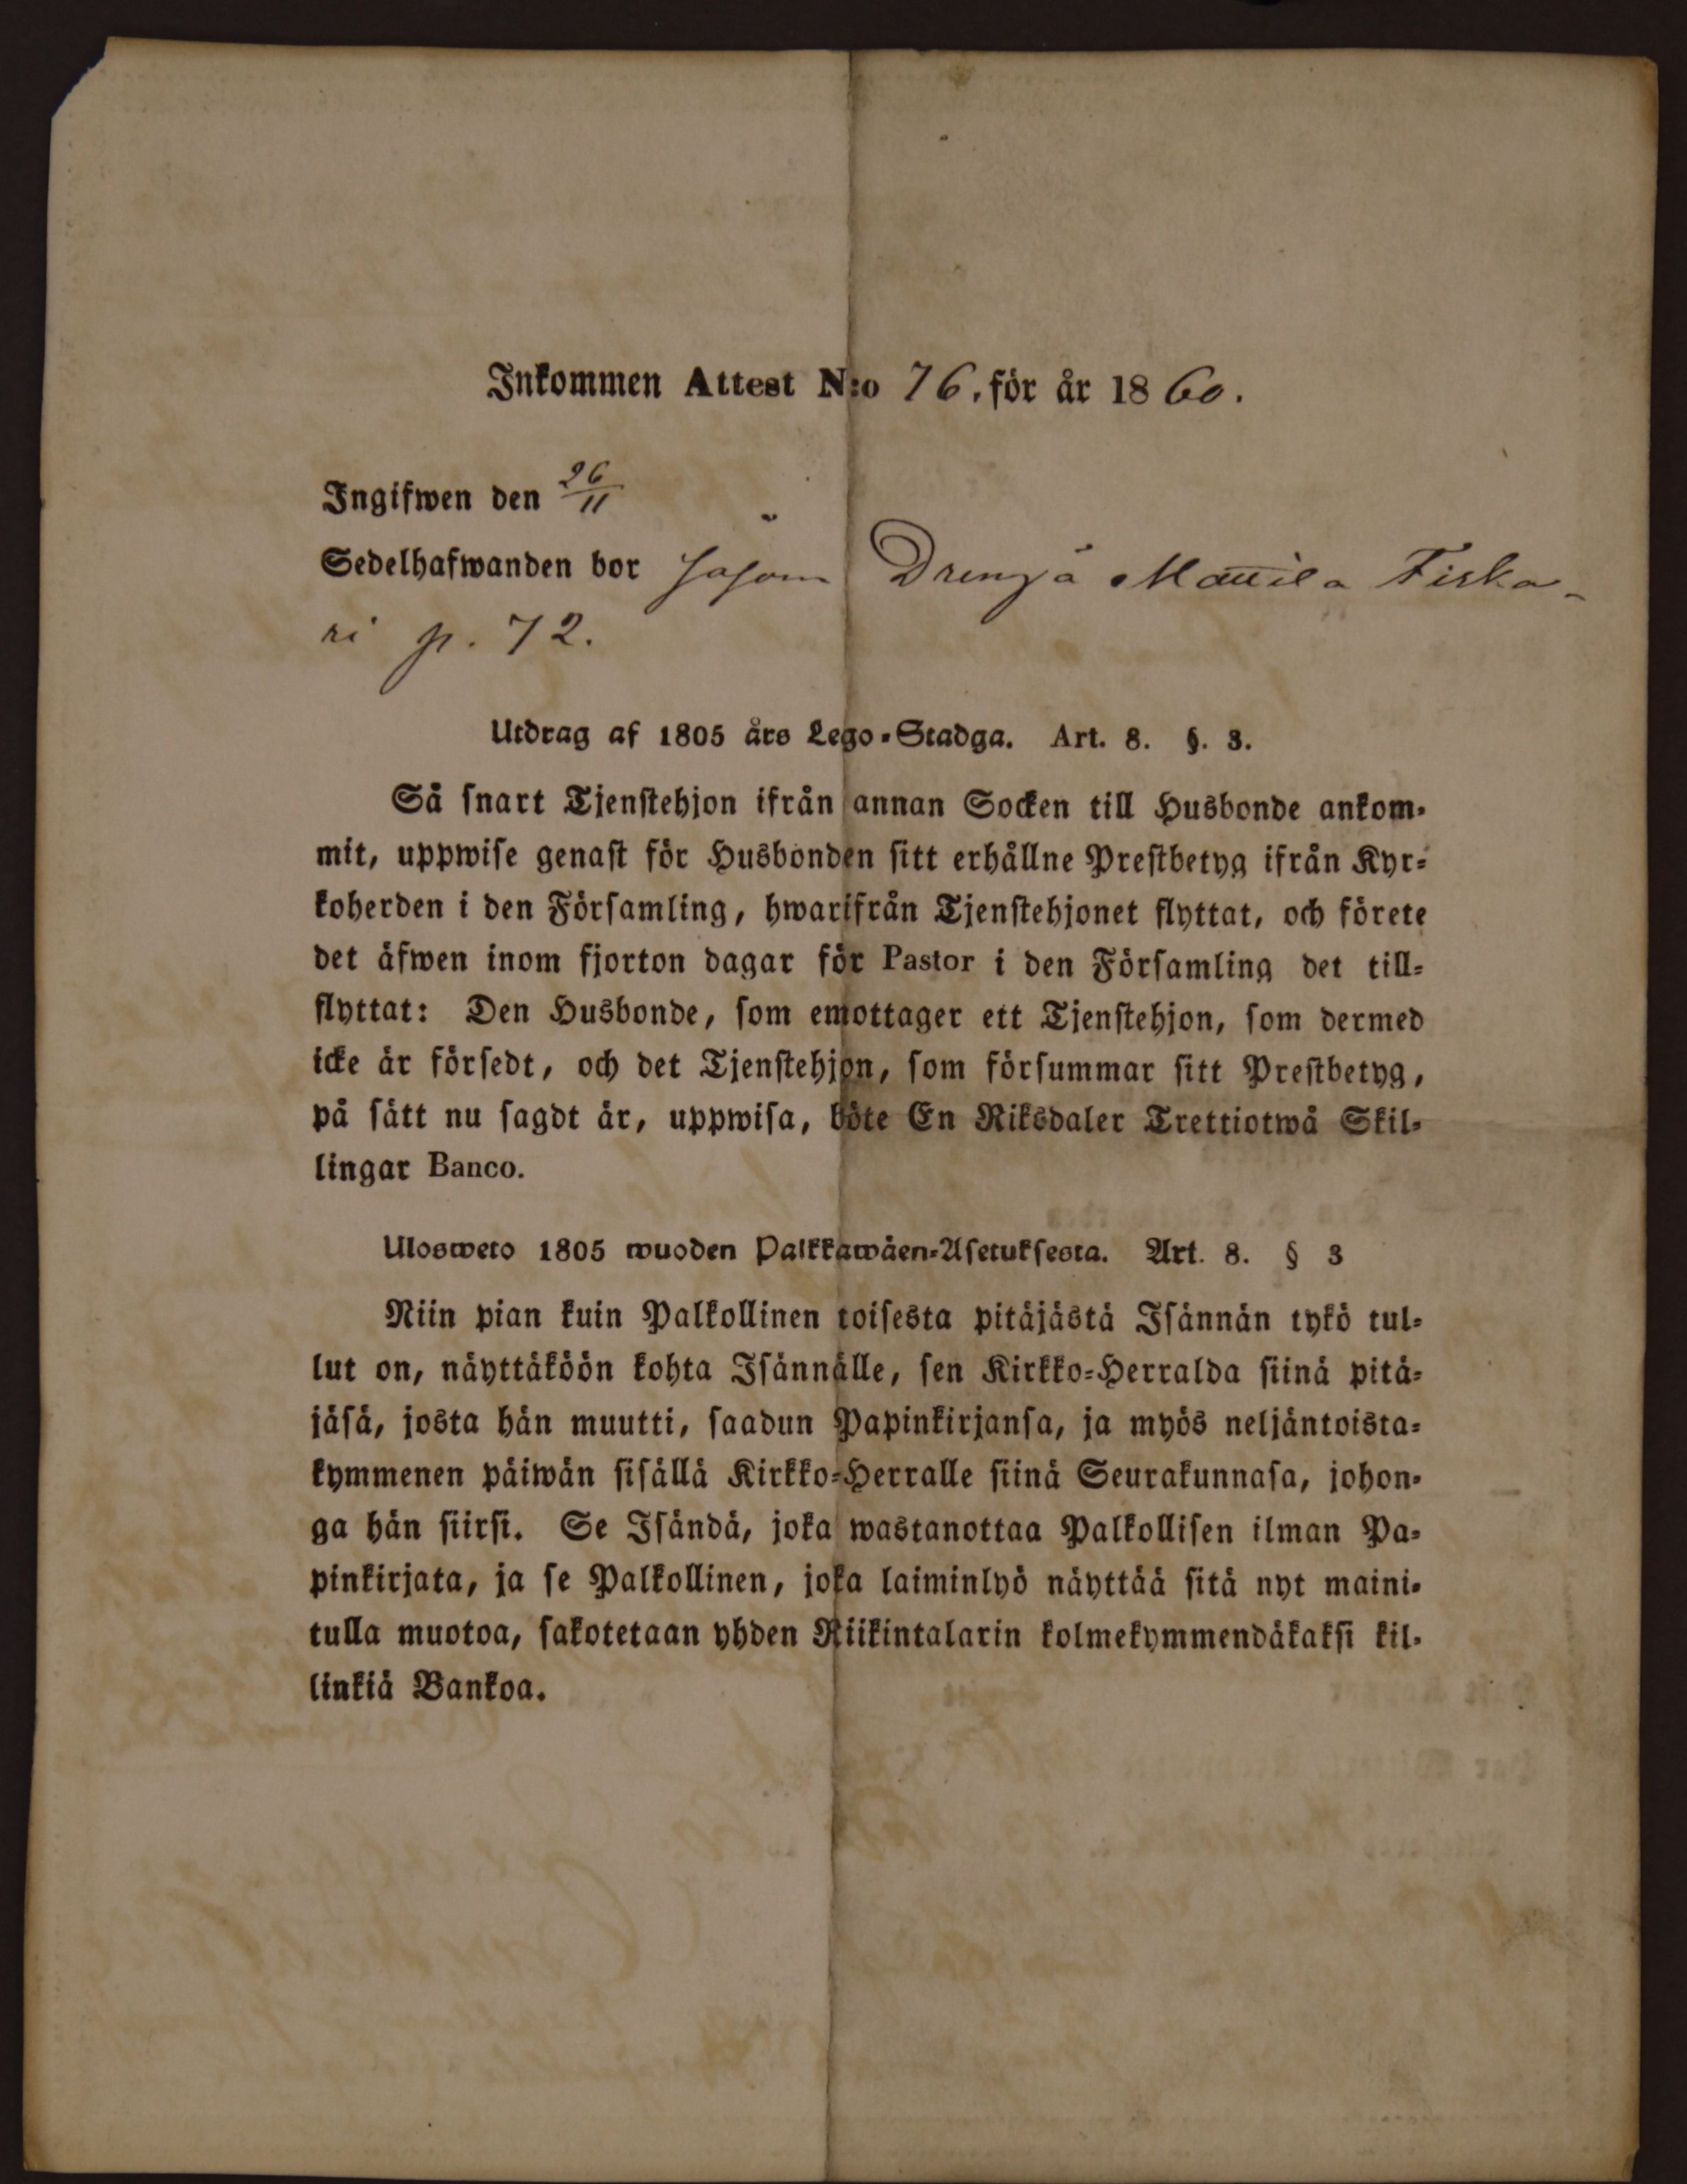 Inkommen Attest N:o 76. för år 1860.
Ingifwen den 26/11
Sedelhafwanden bor såsom Dreng å Mattila Fiska-
ri p. 72.
Utdrag af 1805 års Lego-Stadga. Art. 8. §. 3.
Så snart Tjenstehjon ifrån annan Socken till Husbonde ankom-
mit, uppwise genast för Husbonden sitt erhållne Prestbetyg ifrån Kyr-
koherden i den Församling, hwarifrån Tjenstehjonet flyttat, och förete
det äfwen inom fjorton dagar för Pastor i den Församling det till-
flyttat: Den Husbonde, som emottager ett Tjenstehjon, som dermed
icke är försedt, och det Tjenstehjon, som försummar sitt Prestbetyg,
på sätt nu sagdt är, uppwisa, böte En Riksdaler Trettiotwå Skil-
lingar Banco.
Ulosweto 1805 wuoden Palkkawäen-Asetuksesta. Art. 8. § 3
Niin pian kuin Palkollinen toisesta pitäjästä Isännän tykö tul-
lut on, näyttäköön kohta Isännälle, sen Kirkko-Herralda siinä pitä-
jäsä, josta hän muutti, saadun Papinkirjansa, ja myös neljäntoista-
kymmenen päiwän sisällä Kirkko-Herralle siinä Seurakunnasa, johon-
ga hän siirsi. Se Isändä, joka wastanottaa Palkollisen ilman Pa-
pinkirjata, ja se Palkollinen, joka laiminlyö näyttää sitä nyt maini-
tulla muotoa, sakotetaan yhden Riikintalarin kolmekymmendäkaksi kil-
linkiä Bankoa.